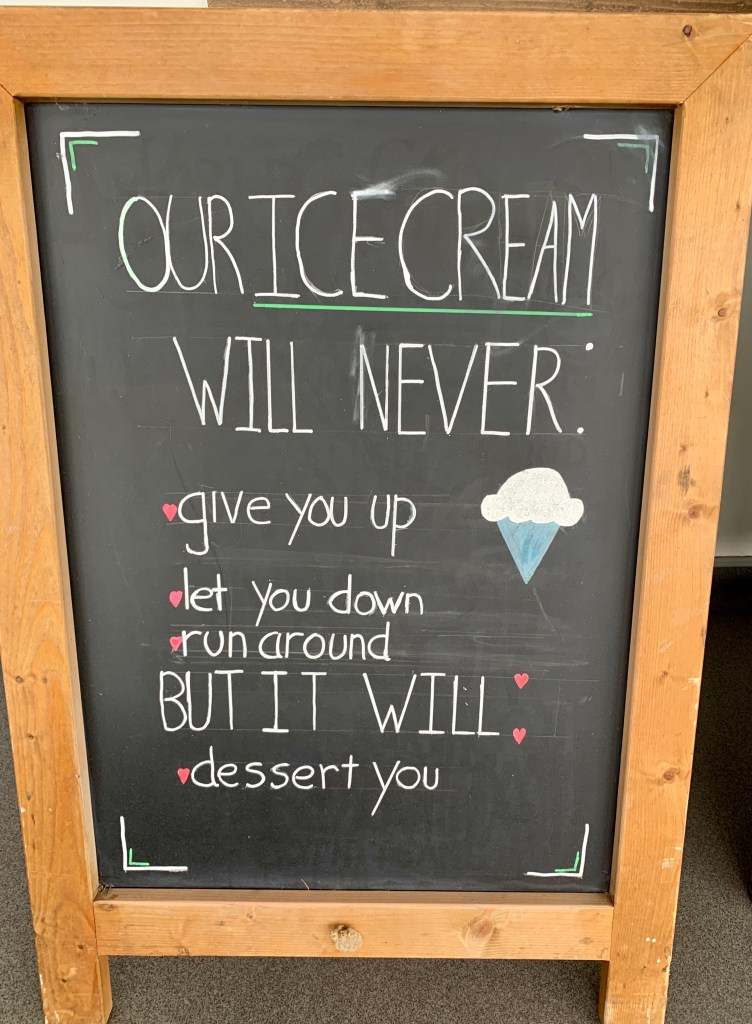 OUR ICE CREAM
WILL NEVER:
give you up
let you down
run around
BUT IT WILL:
dessert you